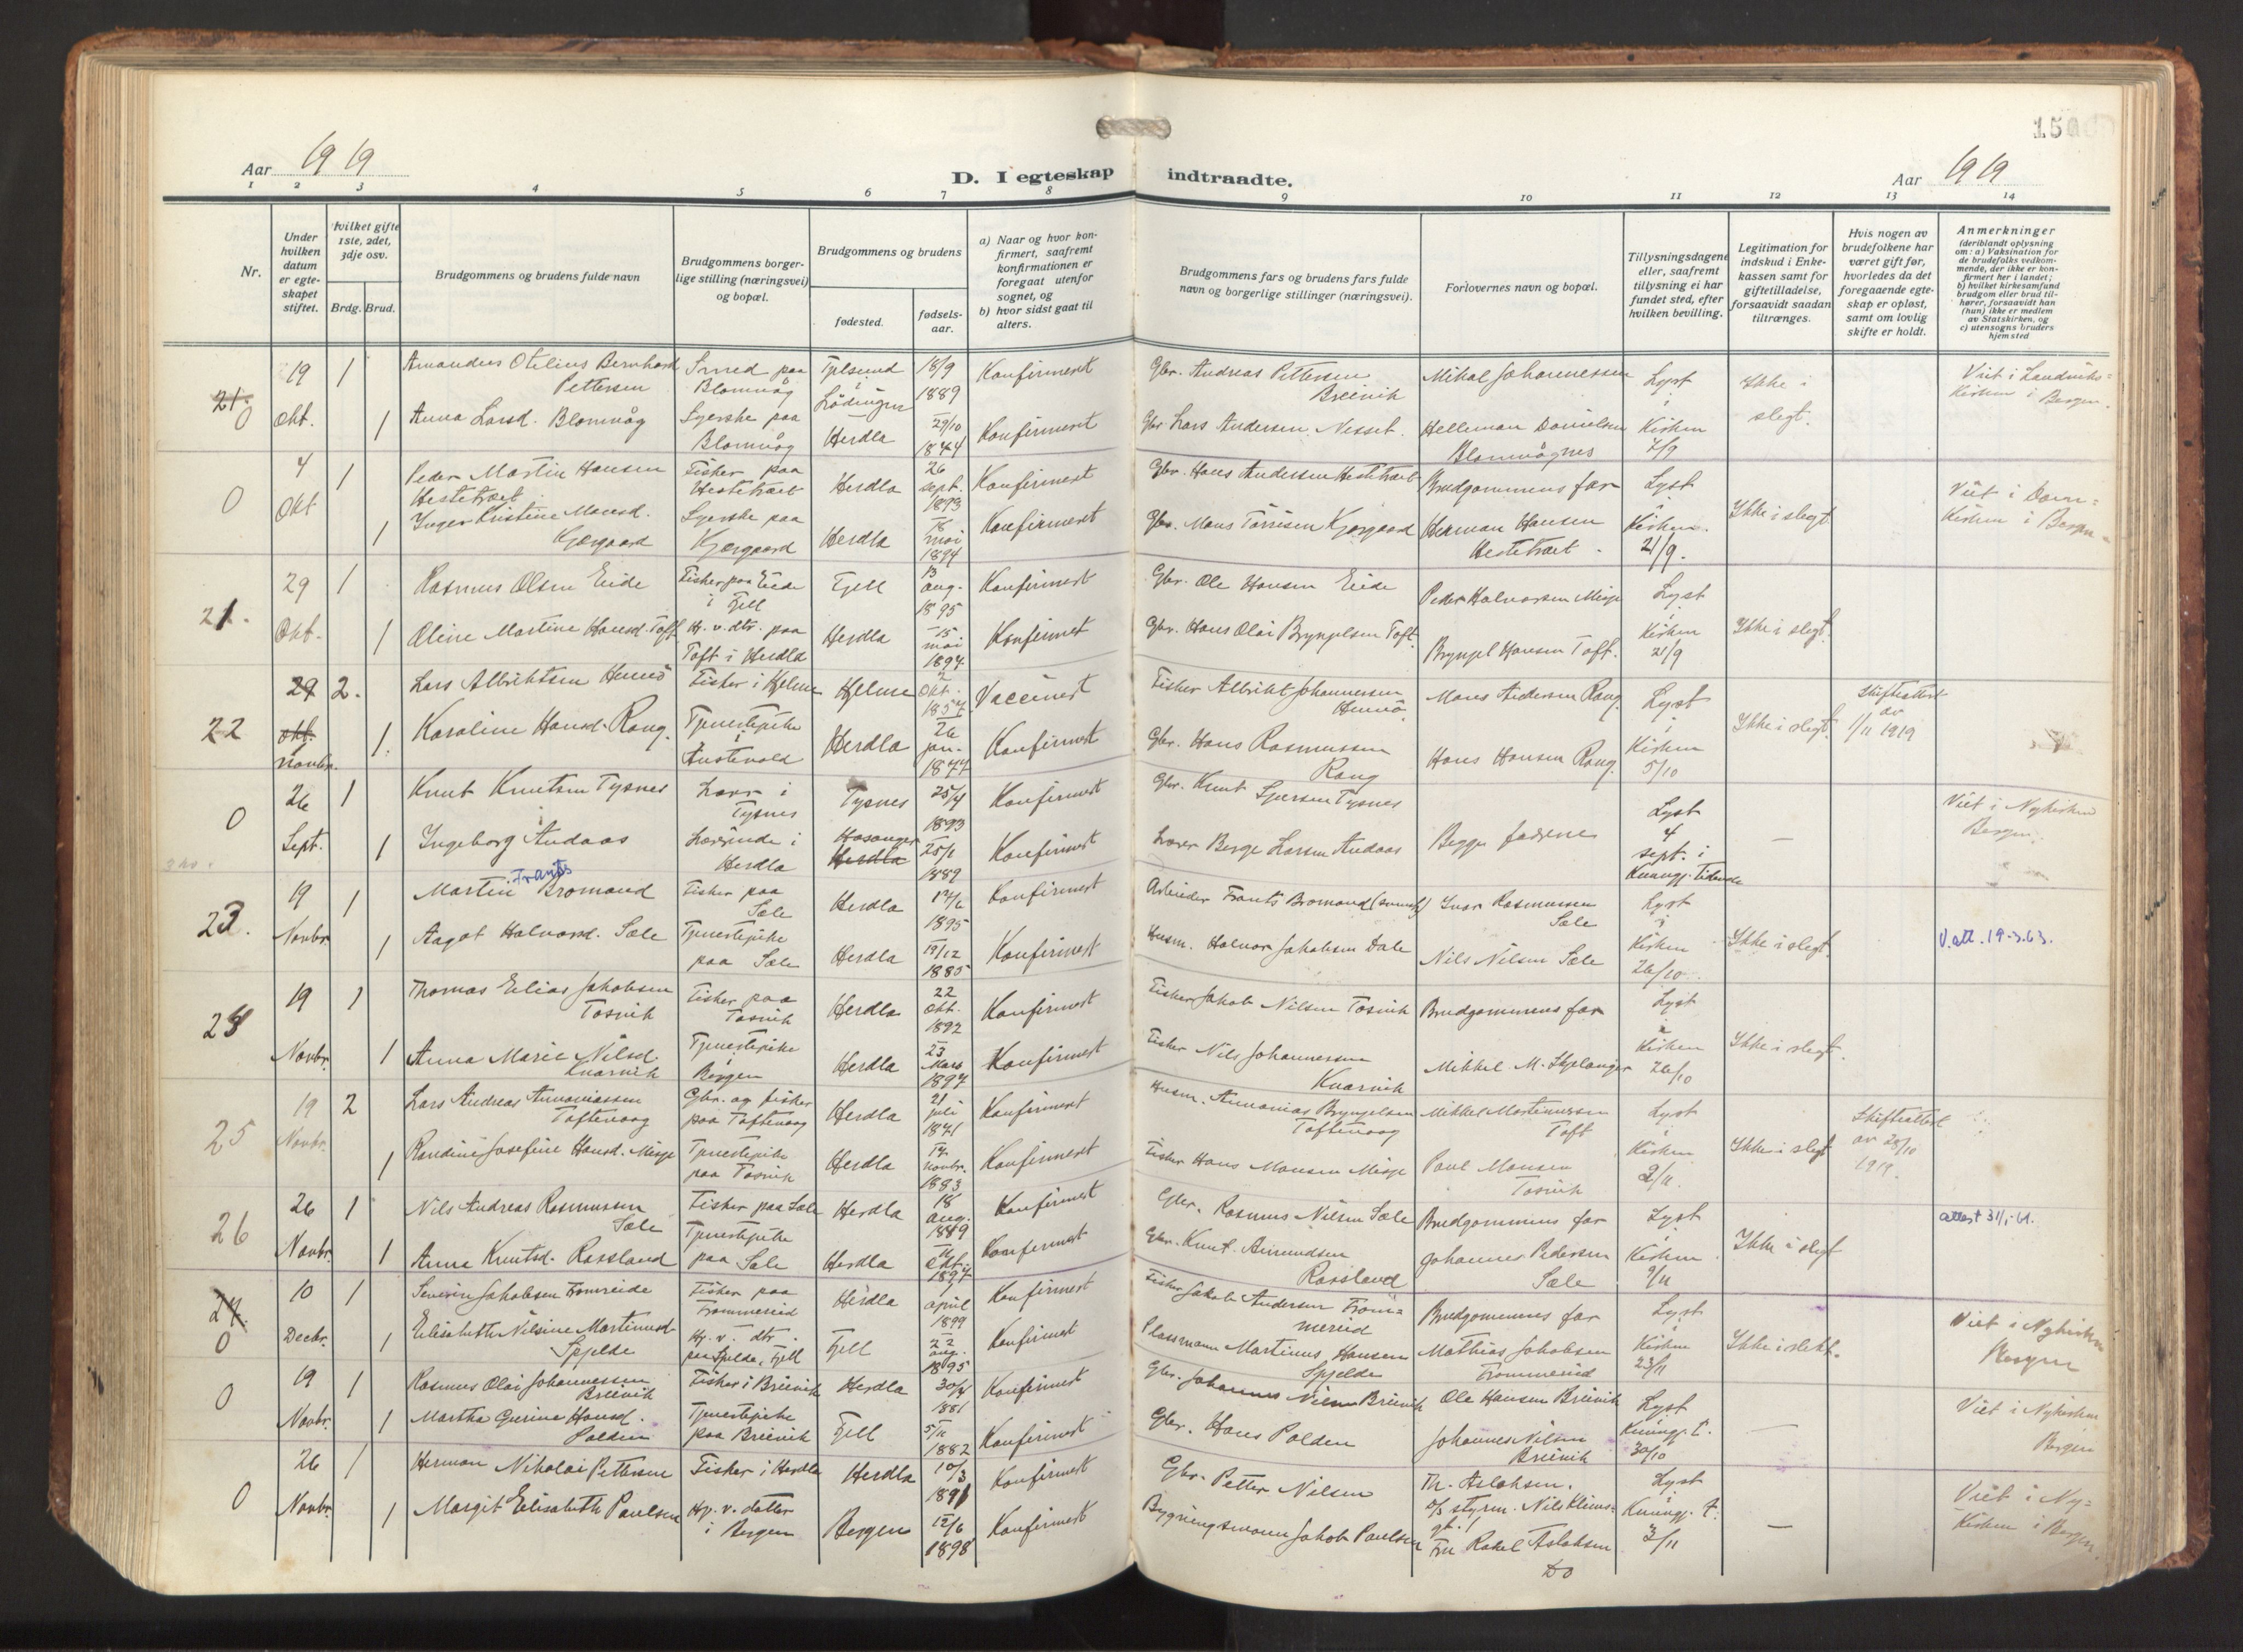 150
Aar 1919
D. I egteskap indtraadte.
Aar 1919
1 2 3 4 5 6 7 8 9 10 11 12 13 14
Nr.
Under hvilken datum er egteskapet stiftet.
Hvilket gifte 1ste, 2det, 3dje osv.
Brdg. Brud.
Brudgommens og brudens fulde navn
Brudgommens borgerlige stilling (næringsvei) og bopæl.
Brudgommens og brudens
fødested.
fødselsaar.
a) Naar og hvor konfirmert, saafremt konfirmationen er foregaat utenfor sognet, og
b) hvor sidst gaat til alters.
Brudgommens fars og brudens fars fulde navn og borgerlige stillinger (næringsvei).
Forlovernes navn og bopæl.
Tillysningsdagene eller, saafremt tillysning ei har fundet sted, efter hvilken bevilling.
Legitimation for indskud i Enkekassen samt for giftetilladelse, forsaavidt saadan tiltrænges.
Hvis nogen av brudefolkene har været gift før, hvorledes da det foregaaende egteskap er opløst, samt om lovlig skifte er holdt.
Anmerkninger
(deriblandt oplysning om: a) Vaksination for de brudefolks vedkommende, der ikke er konfirmert her i landet; b) hvilket kirkesamfund brudgom eller brud tilhører, forsaavidt han (hun) ikke er medlem av Statskirken, og c) utensogns bruders hjemsted
21. 0 19 Okt. 1 Amandus Otelius Bernhard Pettersen Smed paa Blomvåg Tjelsund Lödingen 18/9 1889 Konfirmert Gbr. Andreas Pettersen Breivik Mikal Johannessen Lyst i Kirken 7/9 Ikke i slegt. Viet i Landviks= Kirken i Bergen.
1 Anna Larsd. Blomvåg Syerske paa Blomvåg Herdla 29/10 1844 Konfirmert Gbr Lars Andersen Nesset. Helleman Danielsen Blomvågnes
0 4 Okt 1 Peder Martin Hansen Hestetræet Fisker paa Hestetræet Herdla 26 sept. 1893 Konfirmert Gbr. Hans Andersen Hestetræet Brudgommens far Lyst i Kirken. 21/9. Ikke i slegt Viet i Dom= Kirken i Bergen
1 Inger Kristine Monsd. Kjærgaard Syerske paa Kjærgaard Herdla 18 mai 1894 Konfirmert Gbr. Mons Tørrisen Kjærgaard Herman Hansen Hestetræet.
21. 29 Okt. 1 Rasmus Olsen Eide Fisker paa Eide i Fjell Fjell 13 aug. 1895 Konfirmert Gbr. Ole Hansen Eide Peder Halvorsen Misje Lyst i Kirken 21/9 Ikke i slegt.
1 Oline Martine Hansd. Toft Hp. v. dtr. paa Toft i Herdla Herdla 15 mai 1894 Konfirmert Gbr. Hans Olai Brynjelsen Toft. Brynjel Hansen Toft.
22 29 okt. Novbr. 2. Lars Albriktsen Hennö Fisker i Hjelme Hjelme 2 Okt. 1857 Vaccinert Fisker Albrikt Johannessen Hennö. Mons Andersen Rong. Lyst i Kirken 5/10 Ikke i slegt. Skifteattest av 1/11 1919
1. Karoline Hansd. Rong. Tjenestepike i Austevold Herdla 26 jan. 1877 Konfirmert Gbr. Hans Rasmussen Rong Hans Hansen Rong.
0 26 Sept. 1 Knut Knutsen Tysnes Lærer i Tysnes Tysnes 25/4 1893 Konfirmert Gbr. Knut Sjursen Tysnes Begges fædrene Lyst 4 sept. i Kunngj. Tidende — Viet i Nykirken Bergen.
1 Ingeborg Andaas Lærerinde i Herdla Hosanger Herdla 25/1 1889 Konfirmert Lærer Berge Larsen Andaas
23. 19 Novbr 1 Martin Frants Bromand Fisker paa Sæle Herdla 17/6 1895 Konfirmert Arbeider Frants Bromand (svensk) Ivar Rasmussen Sæle Lyst i Kirken 26/10. Ikke i slegt. V.att. 19-3.63.
1 Aagot Halvord. Sæle Tjenestepike paa Sæle Herdla 19/12 1885 Konfirmert Husm. Halvor Jakobsen Dale Nils Nilsen Sæle
24 19 Novbr. 1 Thomas Elias Jakobsen Tosvik Fisker paa Tosvik Herdla 22 Okt. 1892 Konfirmert Fisker Jakob Nilsen Tosvik Brudgommens far Lyst i Kirken 26/10 Ikke i slegt.
1 Anna Marie Nilsd. Kvarvik Tjenestepike i Bergen Herdla 23 Mars 1897 Konfirmert Fisker Nils Johannessen Kvarvik Mikkel M. Skjelanger
25 19 Novbr. 2 Lars Andreas Annaniassen Toftevaag Gbr. og fisker paa Toftevaag Herdla 21 juli 1871 Konfirmert Husm. Annanias Brynjelsen Toftevaag Mikkel Martinussen Toft Lyst i Kirken 2/11. Ikke i slegt Skifteattest av 28/10 1919.
1 Randine Josefine Hansd. Misje Tjenestepike paa Tosvik Herdla 17. Novbr. 1883 Konfirmert Fisker Hans Monsen Misje Paul Monsen Tosvik
26 26 Novbr. 1 Nils Andreas Rasmussen Sæle Fisker paa Sæle Herdla 18 aug. 1889 Konfirmert Gbr. Rasmus Nilsen Sæle Brudgommens far Lyst i Kirken 9/11 Ikke i slegt attest 31/1-61.
1 Anna Knutsd. Rossland Tjenestepike paa Sæle Herdla 11 Okt. 1897 Konfirmert Gbr. Knut Amundsen Rossland Johannes Pedersen Sæle
27. 0 10 Decbr. 1 Severin Jakobsen Fromreide Fisker paa Frommereid Herdla april 1899 Konfirmert Fisker Jakob Andersen From= mereid Brudgommens far Lyst i Kirken 23/11 Ikke i slekt. Viet i Nykirken Bergen
1 Elisabeth Nilsine Martinusd. Spjelde Hp. v. dtr. paa Spjelde, Fjell Fjell 22 aug. 1895 Konfirmert Plassmann Martinus Hansen Spjelde Mathias Jakobsen Frommereid
0 19 Novbr. 1 Rasmus Olai Johannessen Breivik Fisker i Breivik Herdla 30/4 1881 Konfirmert Gbr. Johannes Nilsen Breivik Ole Hansen Breivik Lyst Kunngj. t. 30/10 — Viet i Nykirken Bergen
1 Martha Gurine Hansd. Polden Tjenestepike paa Breivik Fjell 5/11 1882 Konfirmert Gbr. Hans Polden Johannes Nilsen Breivik
0 26 Novbr. 1 Herman Nikolai Pettersen Fisker i Herdla Herdla 10/3 1891 Konfirmert Gbr. Petter Nilsen Th. Aslaksen. Lyst Kunngj. t. 3/11 — Viet i Ny= Kirken i Bergen.
1 Margit Elisabeth Paulsen Hp. v. datter i Bergen Bergen 12/6 1898 Konfirmert Bygningsmann Jakob Paulsen Fru Rakel Aslaksen Do